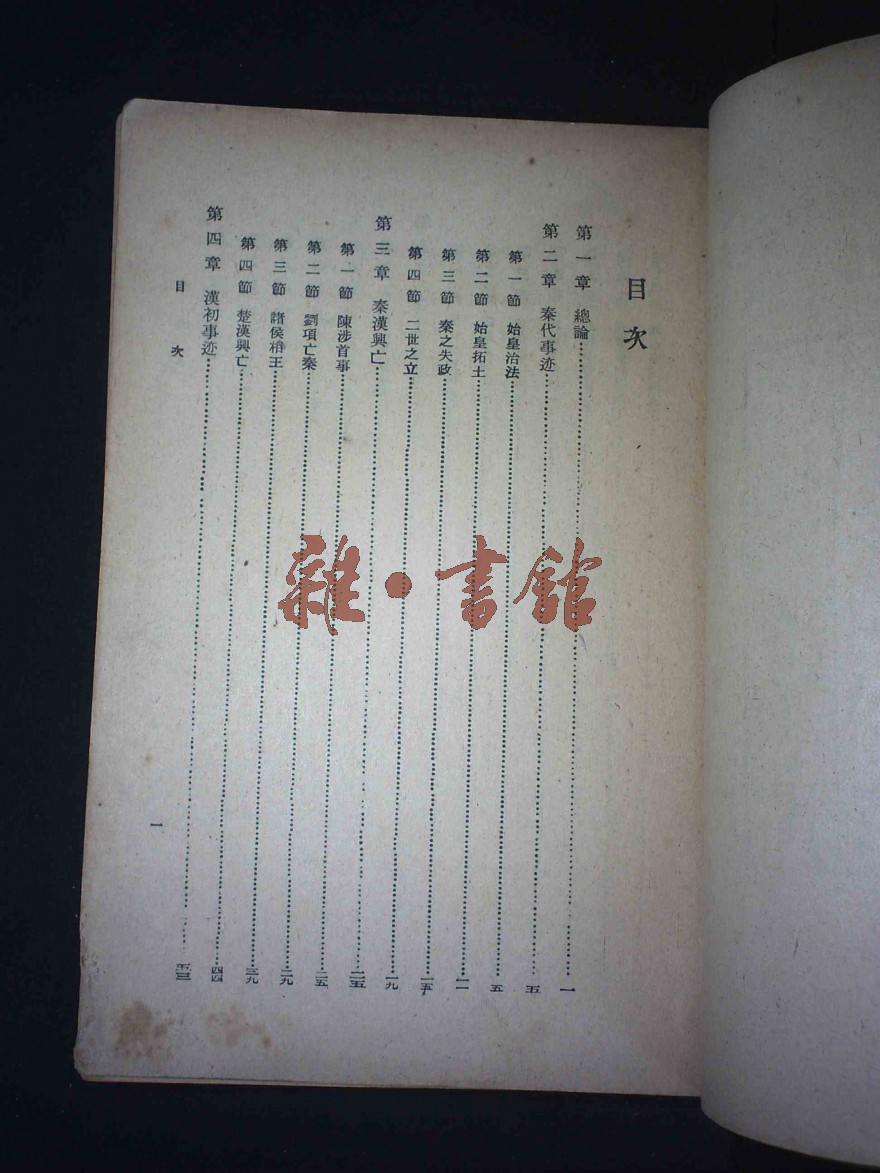 目次
第一章 總論……一
第二章 秦代事迹……五
第一節 始皇治法……五
第二節 始皇拓土……一一
第三節 秦之失政……一五
第四節 二世之立……一九
第三章 秦漢興亡……二五
第一節 陳涉首事……二五
第二節 劉項亡秦……二九
第三節 諸侯相王……三九
第四節 楚漢興亡……四四
第四章 漢初事迹……五三
目次
一
雜·書館